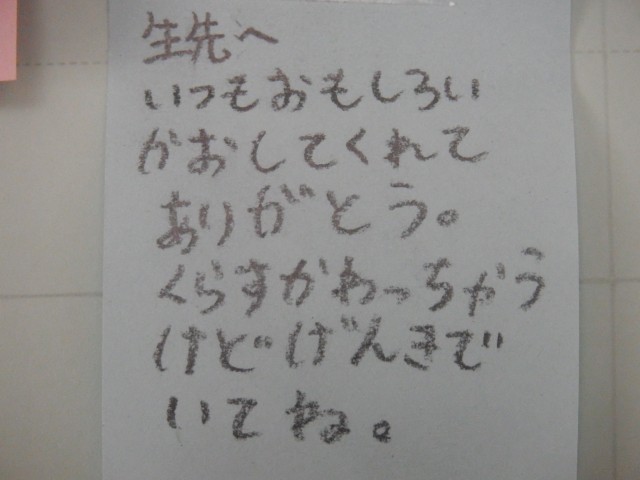 生先へ
いつもおもしろい
かおしてくれて
ありがとう。
くらすかわっちゃう
けどげんきで
いてね。